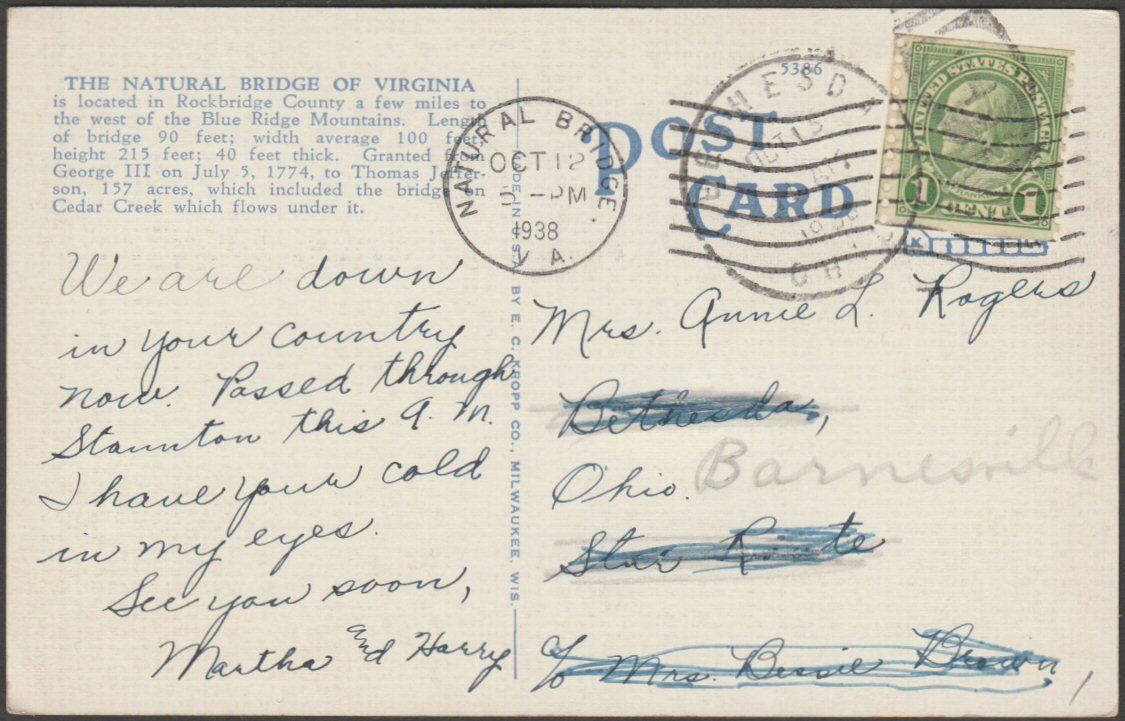 THE NATURAL BRIDGE OF VIRGINIA
is located in Rockbridge County a few miles to
the west of the Blue Ridge Mountains. Length
of bridge 90 feet; width average 100 feet;
height 215 feet; 40 feet thick. Granted from
George III on July 5, 1774, to Thomas Jeffer-
son, 157 acres, which included the bridge on
Cedar Creek which flows under it.
We are down
in your country
now. Passed through
Staunton this A.M.
I have your cold
in my eyes.
See you soon,
Martha and Harry
NATURAL BRIDGE.
OCT 12
-PM
1938
VA.
MADE IN U.S.A. BY E. C. KROPP CO., MILWAUKEE, WIS.
5386
POST
CARD
BETHESDA
OCT 13
OH
UNITED STATES POSTAGE
FRANKLIN
1 CENT 1
Mrs. Annie L. Rogers
Bethesda,
Ohio. Barnesville
Star Route
c/o Mrs. Bessie Brown,